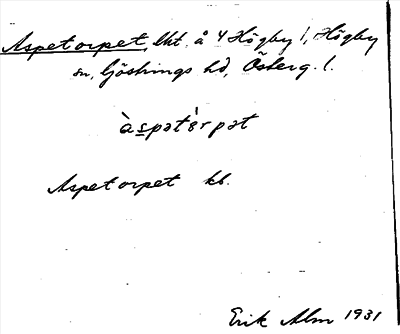 Aspetorpet, lht. å 4 Högby 1, Högby
sn, Göstrings hd, Österg. l.
àspətèrpət
Aspetorpet kb.
Erik Alm 1931